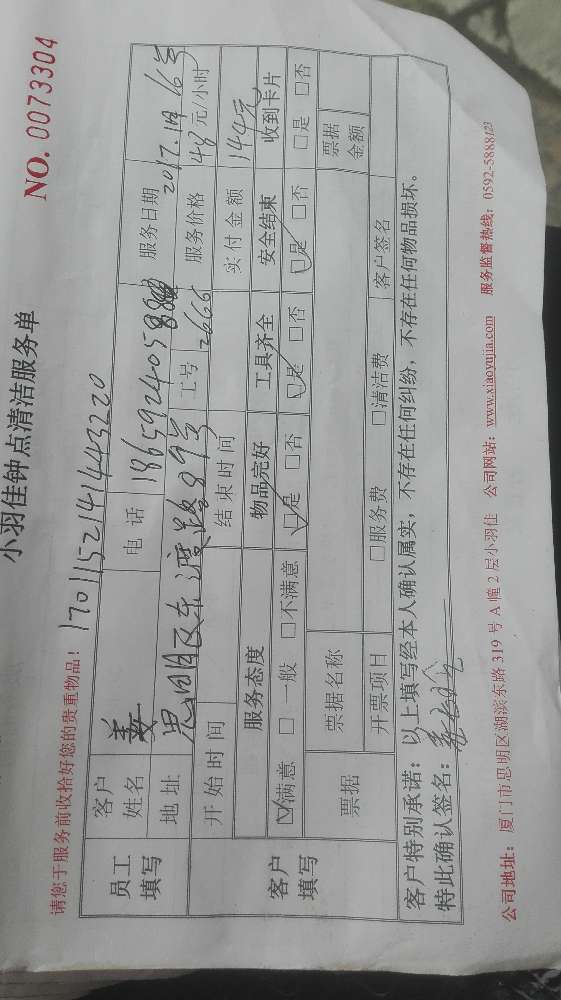 小羽佳钟点清洁服务单
NO. 0073304
请您于服务前收拾好您的贵重物品! 1701152141443220
员工填写 客户姓名 姜 电话 服务日期 2017.1月16号
地址 思明区东渡路89号 工号 2666 服务价格 48元/小时
开始时间 结束时间 实付金额 144元
客户填写 服务态度 物品完好 工具齐全 安全结束 收到卡片
☑满意 □一般 □不满意 ☑是 □否 ☑是 □否 ☑是 □否 □是 □否
票据 票据名称 票据金额
开票项目 □服务费 □清洁费 客户签名
客户特别承诺：以上填写经本人确认属实，不存在任何纠纷，不存在任何物品损坏。
特此确认签名：
公司地址：厦门市思明区湖滨东路319号A幢2层小羽佳 公司网站：www.xiaoyujia.com 服务监督热线：0592-5888123